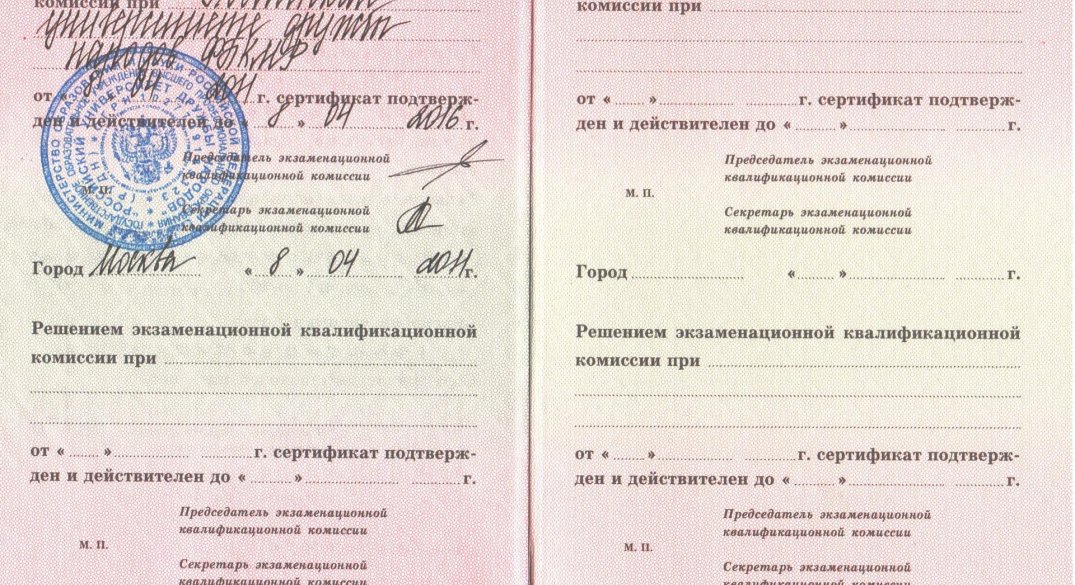 комиссии при Российском
университете дружбы
народов ФПКМР
от « 8 » 04 2011 г. сертификат подтверж-
ден и действителен до « 8 » 04 2016 г.
Председатель экзаменационной
квалификационной комиссии
М. П.
Секретарь экзаменационной
квалификационной комиссии
Город Москва « 8 » 04 2011 г.
Решением экзаменационной квалификационной
комиссии при
от « » г. сертификат подтверж-
ден и действителен до « » г.
Председатель экзаменационной
квалификационной комиссии
М. П.
Секретарь экзаменационной
квалификационной комиссии
комиссии при
от « » г. сертификат подтверж-
ден и действителен до « » г.
Председатель экзаменационной
квалификационной комиссии
М. П.
Секретарь экзаменационной
квалификационной комиссии
Город « » г.
Решением экзаменационной квалификационной
комиссии при
от « » г. сертификат подтверж-
ден и действителен до « » г.
Председатель экзаменационной
квалификационной комиссии
М. П.
Секретарь экзаменационной
квалификационной комиссии